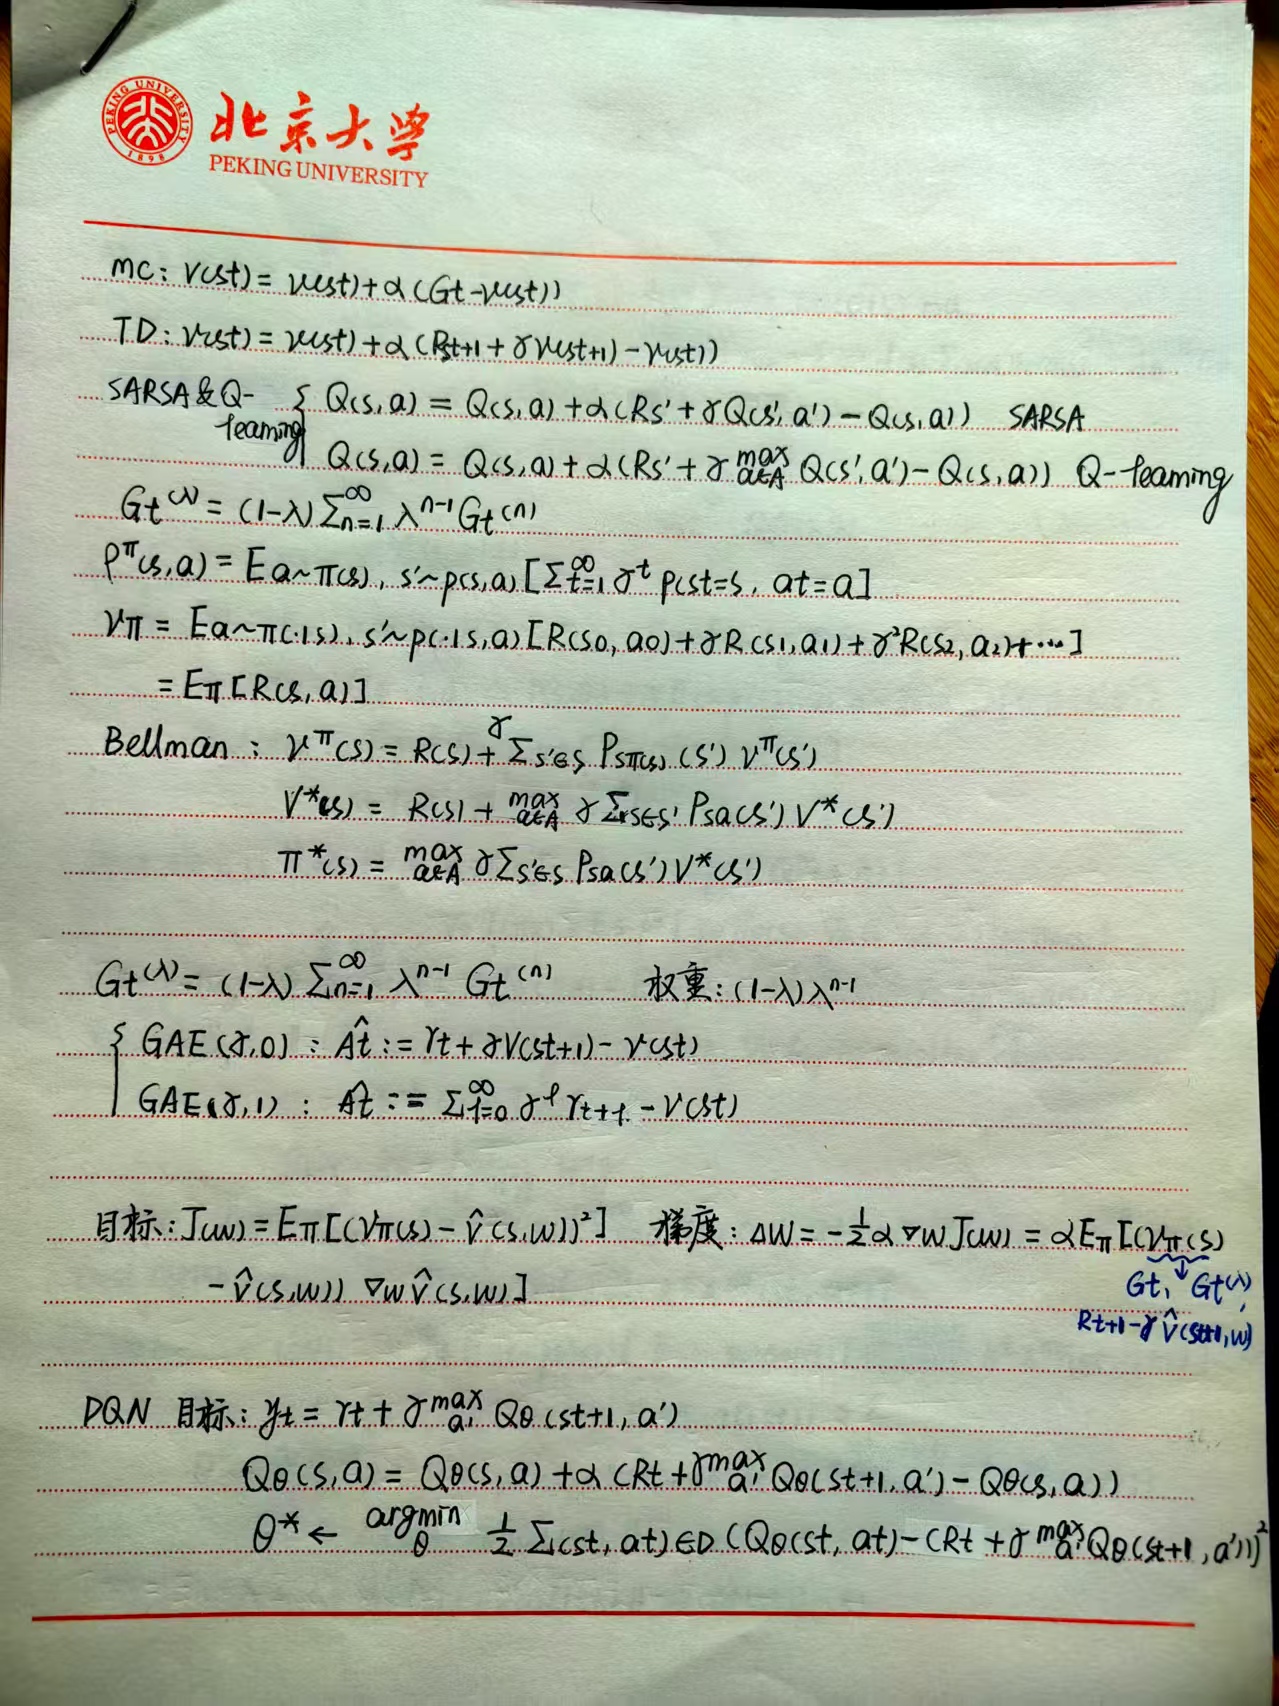 PEKING UNIVERSITY
1898
北京大学
PEKING UNIVERSITY
MC: V(st) = V(st) + α(Gt - V(st))
TD: V(st) = V(st) + α(Rst+1 + γV(st+1) - V(st))
SARSA & Q-learning { Q(s, a) = Q(s, a) + α(Rs' + γQ(s', a') - Q(s, a)) SARSA
Q(s, a) = Q(s, a) + α(Rs' + γ max a∈A Q(s', a') - Q(s, a)) Q-learning
Gt^(λ) = (1-λ) Σ_{n=1}^∞ λ^{n-1} Gt^(n)
ρ^π(s, a) = E a~π(s), s'~p(s, a) [Σ_{t=1}^∞ γ^t p(st=s, at=a]
Vπ = E a~π(·|s), s'~p(·|s, a) [R(s0, a0) + γR(s1, a1) + γ²R(s2, a2) + ···]
= Eπ[R(s, a)]
Bellman: V^π(s) = R(s) + γ Σ s'∈S P sπ(s) (s') V^π(s')
V*(s) = R(s) + max a∈A γ Σ s∈s' Psa(s') V*(s')
π*(s) = max a∈A γ Σ s'∈S Psa(s') V*(s')
Gt^(λ) = (1-λ) Σ_{n=1}^∞ λ^{n-1} Gt^(n) 权重: (1-λ)λ^{n-1}
{ GAE(γ, 0): Ât := rt + γV(st+1) - V(st)
GAE(γ, 1): Ât := Σ_{l=0}^∞ γ^l rt+l - V(st)
目标: J(w) = Eπ[(Vπ(s) - v̂(s, w))²] 梯度: ΔW = -½α ∇w J(w) = αEπ[(Vπ(s)
- v̂(s, w)) ∇w v̂(s, w)]
↓
Gt、Gt^(λ),
Rt+1 - γ v̂(st+1, w)
DQN 目标: yt = rt + γ max a' Qθ(st+1, a')
Qθ(s, a) = Qθ(s, a) + α(Rt + γ max a' Qθ(st+1, a') - Qθ(s, a))
θ* ← argmin θ ½ Σ(st, at)∈D (Qθ(st, at) - (Rt + γ max a' Qθ(st+1, a')))²